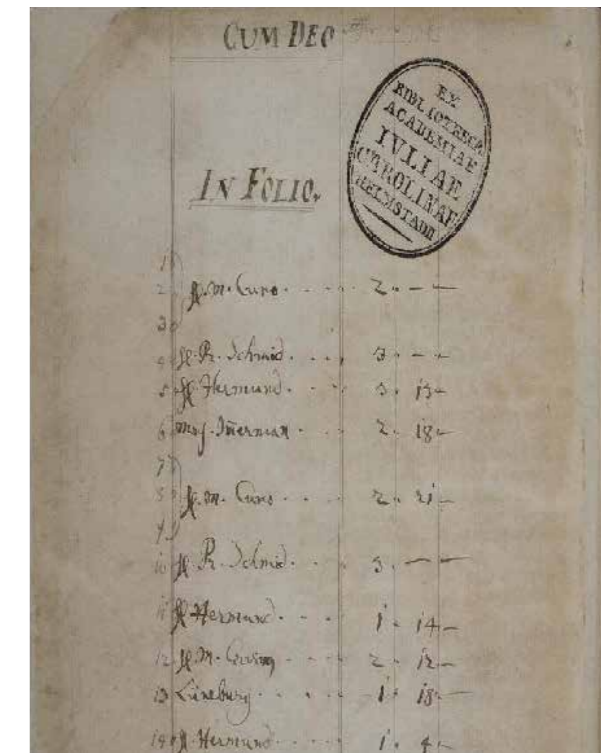 CUM DEO
EX
BIBLIOTHECA
ACADEMIAE
IVLIAE
CAROLINAE
HELMSTADII
IN FOLIO.
1
2 H. M. Curo. 2. — —
3
4 H. R. Schmid. 3. — —
5 H. Hermund. 3. 13 —
6 2. 18 —
7
8 H. M. Curo 2. 21 —
9
10 H. R. Schmid. 3. — —
11 H. Hermund. 1. 14 —
12 H. M. 2. 12 —
13 Lüneburg 1. 18 —
14 H. Hermund. 1. 4 —